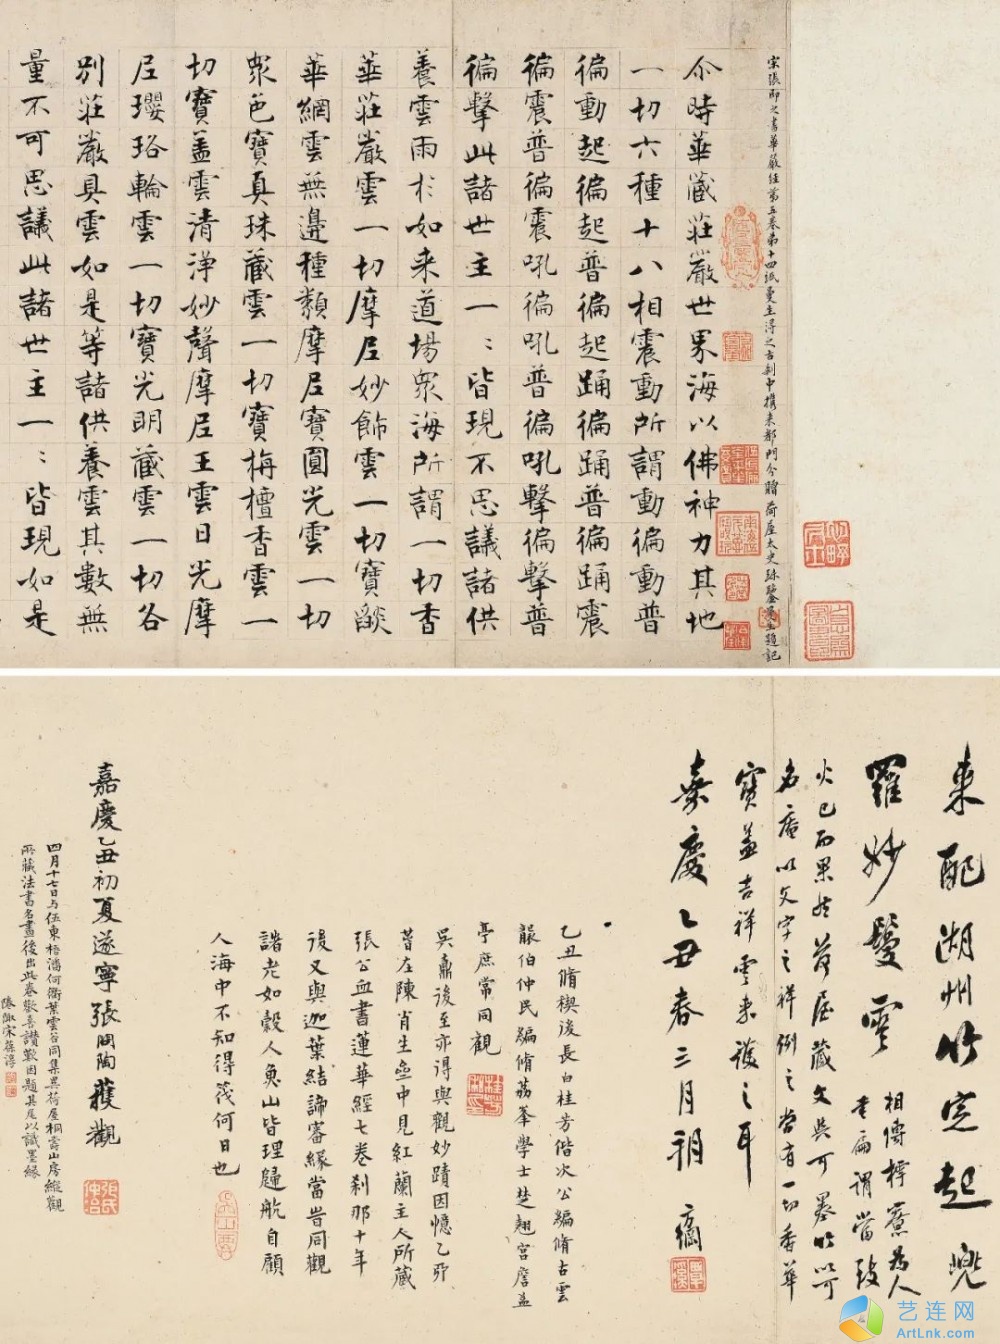 宋張即之書華嚴經第五卷第十四紙曼生得之古刹中攜來都門分贈荷屋太史珎賞曼生題記
尒時華藏莊嚴世界海以佛神力其地
一切六種十八相震動所謂動徧動普
徧動起徧起普徧起踊徧踊普徧踊震
徧震普徧震吼徧吼普徧吼擊徧擊普
徧擊此諸世主一〻皆現不思議諸供
養雲雨於如来道場衆海所謂一切香
華莊嚴雲一切摩尼妙飾雲一切寶燄
華網雲無邊種類摩尼寶圓光雲一切
衆色寶真珠藏雲一切寶栴檀香雲一
切寶盖雲清淨妙聲摩尼王雲日光摩
尼瓔珞輪雲一切寶光明藏雲一切各
別莊嚴具雲如是等諸供養雲其數無
量不可思議此諸世主一〻皆現如是
来配湖州竹定起兜
羅妙鬘雲
相傳樗寮為人
書扁謂當致
火已而果然荷屋藏文吳可墨竹以可
名庵以文字之祥例之当有一切香華
寶盖吉祥雲来護之耳
嘉慶乙丑春三月朔
乙丑脩禊後長白桂芳偕次公編脩古雲
襲伯仲民編脩荔峯學士楚翹宮詹孟
亭庶常同觀
吳鼒後至亦得與觀妙蹟因憶乙卯
昔在陳肖生壘中見紅蘭主人所藏
張公血書蓮華經七卷刹那十年
後又與迦葉結諦審緣當昔同觀
諸老如穀人魚山皆理歸航自顧
人海中不知得筏何日也
嘉慶乙丑初夏遂寧張問陶獲觀
四月十七日与伍東梧潘何衢葉雲谷同集吳荷屋桐壽山房縱觀
所藏法書名畫後出此卷歡喜讃歎因題其尾以識墨緣
宋葆淳
艺连网
ArtLnk.com